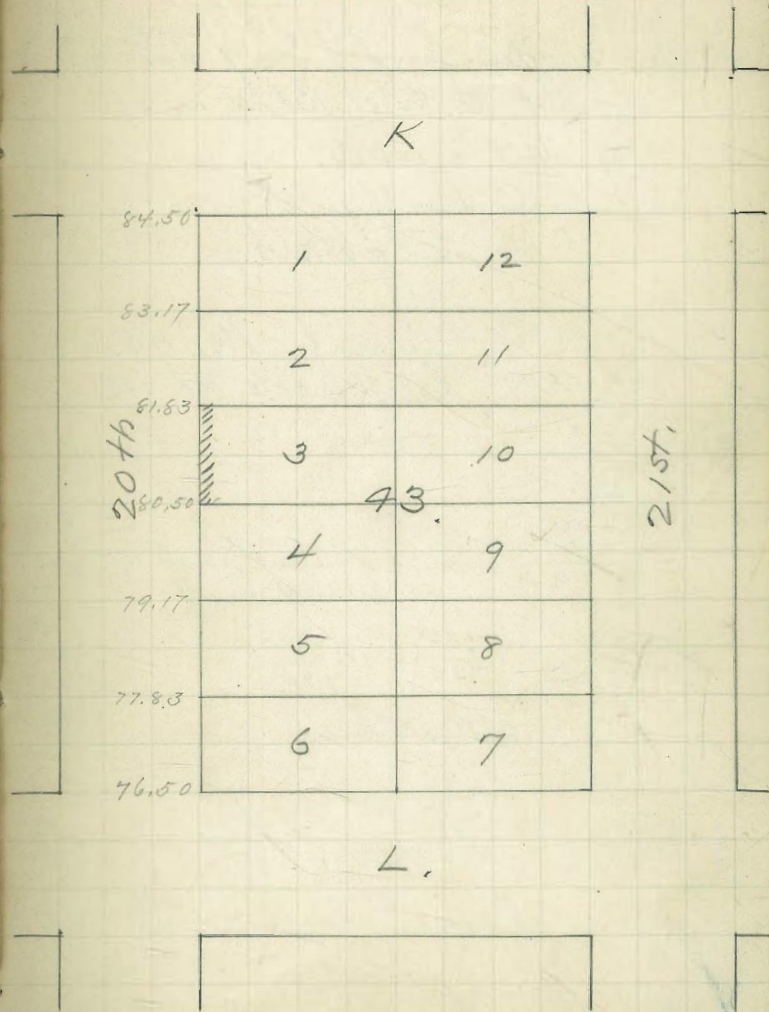 K
84.50
1 12
83.17
2 11
81.83
20th
3 10
21st.
80.50
43
4 9
79.17
5 8
77.83
6 7
76.50
L.